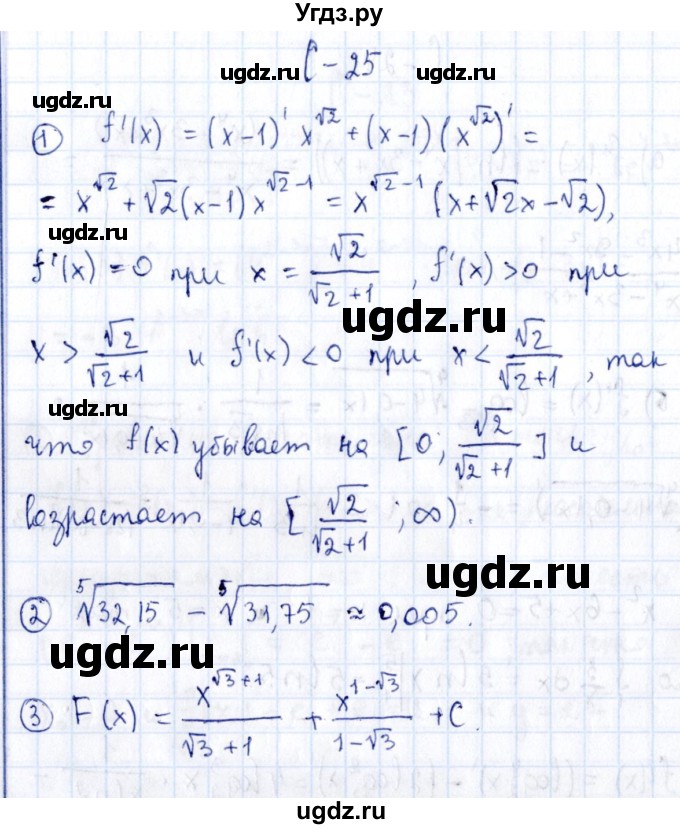 Угдз.ру
С-25
ugdz.ru ugdz.ru
① f'(x) = (x-1)' x^{√2} + (x-1)(x^{√2})' =
= x^{√2} + √2(x-1)x^{√2-1} = x^{√2-1}(x+√2x-√2),
ugdz.ru
f'(x) = 0 при x = √2/(√2+1), f'(x) > 0 при
ugdz.ru
x > √2/(√2+1) и f'(x) < 0 при x < √2/(√2+1), так
ugdz.ru
что f(x) убывает на [0; √2/(√2+1)] и
возрастает на [√2/(√2+1); ∞).
ugdz.ru
② ⁵√32,15 - ⁵√31,75 ≈ 0,005.
ugdz.ru
③ F(x) = x^{√3+1}/(√3+1) + x^{1-√3}/(1-√3) + C.
ugdz.ru ugdz.ru
ugdz.ru